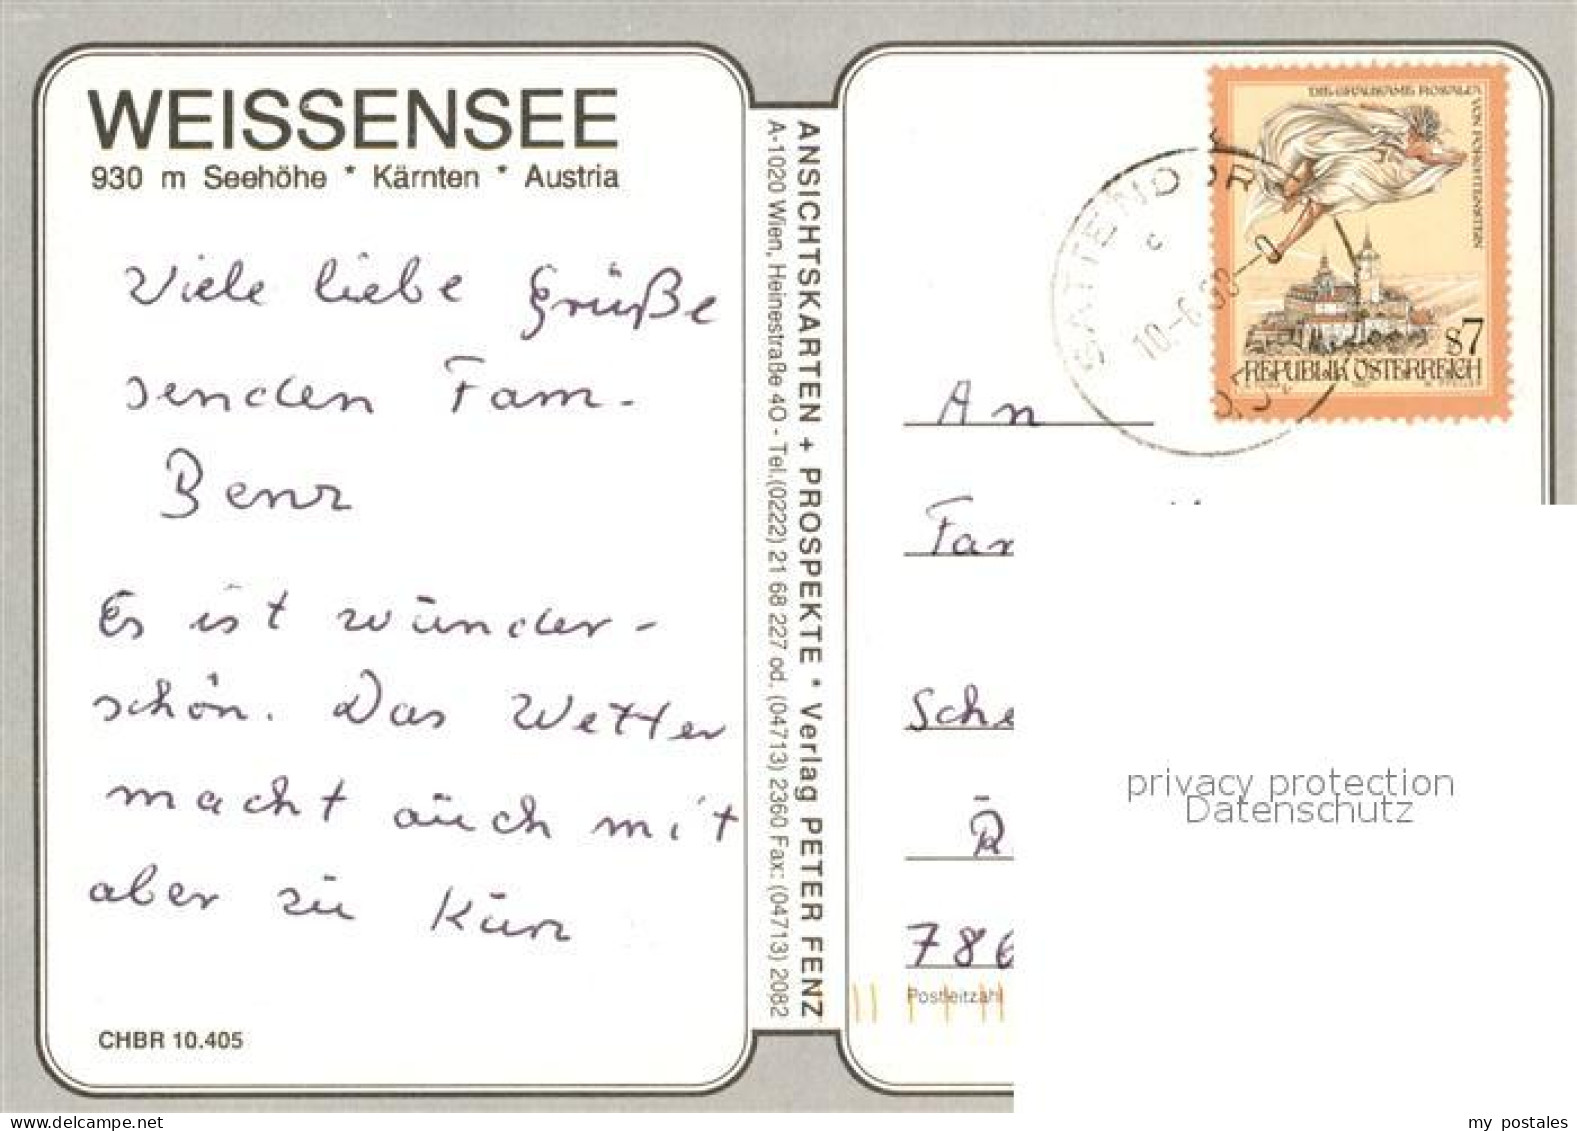 WEISSENSEE
930 m Seehöhe * Kärnten * Austria
Viele liebe Grüße
senden Fam.
Benz
Es ist wunder-
schön. Das Wetter
macht auch mit
aber zu Kurz
CHBR 10.405
ANSICHTSKARTEN + PROSPEKTE * Verlag PETER FENZ
A-1020 Wien, Heinestraße 40 - Tel. (0222) 21 68 227 od. (04713) 2360 Fax: (04713) 2082
DIE GRAUSAME ROSALIA
VON FORCHTENSTEIN
S7
REPUBLIK ÖSTERREICH
SATTENDORF
10.-6.
An
Fam
Sche
786
Postleitzahl
privacy protection
Datenschutz
my postales